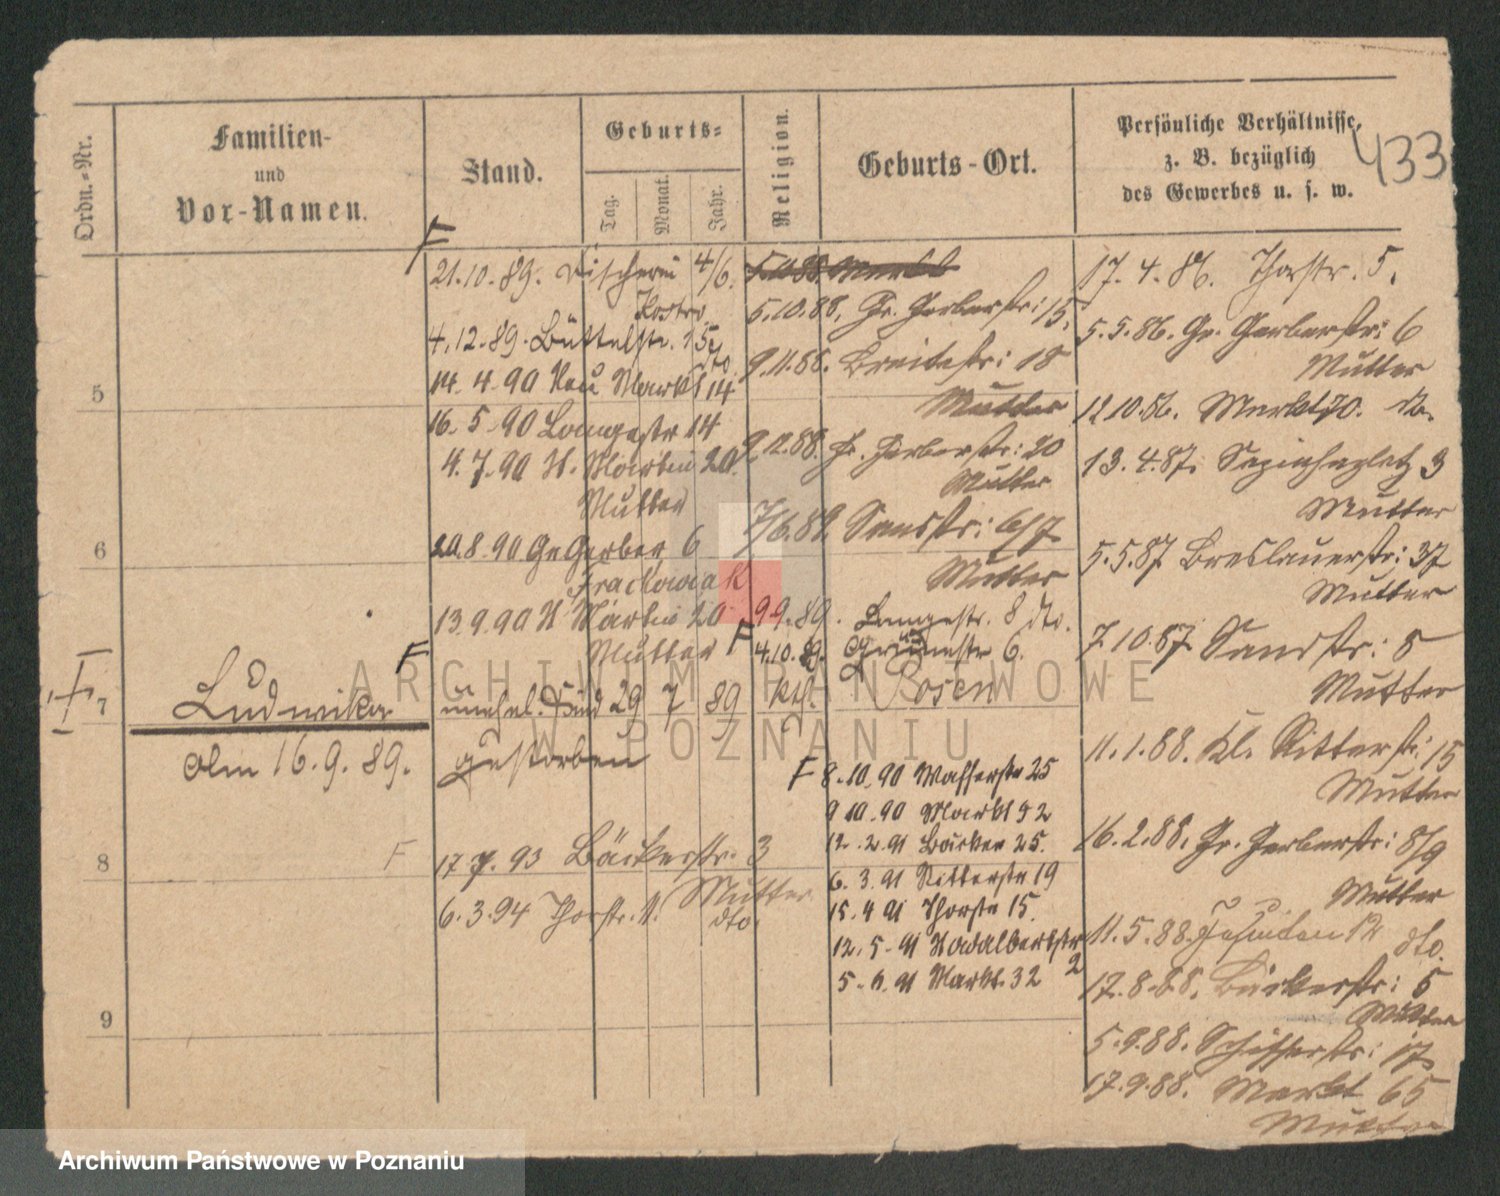 Ordn.-Nr.
Familien-
und
Vor-Namen.
Stand.
Geburts-
Tag.
Monat.
Jahr.
Religion.
Geburts-Ort.
Persönliche Verhältnisse,
z. B. bezüglich
des Gewerbes u. s. w.
433
F
21.10.89. Fischerei 4/6.
4.12.89. Büttelstr.
14.4.90 Neu Markt 14
16.5.90 Langestr 14
4.7.90 H. Martin 20
Mutter
20.8.90 Gr Gerber 6
Frackowiak
13.9.90 H Martin 20
Mutter
5.10.88. Markt
5.10.88. Gr. Gerberstr: 15.
9.11.88. Breitestr: 18
Mutter
9.12.88. Gr. Gerberstr: 20
Mutter
7/6.89. Sandstr: 6/7
Mutter
9.9.89. Langestr. 8 dto.
F 4.10.89. Grünestr 6.
17.4.86. Thorstr. 5.
5.5.86. Gr. Gerberstr: 6
Mutter
12.10.86. Markt 70. do.
13.4.87. Sapiehaplatz 3
Mutter
5.5.87 Breslauerstr: 37
Mutter
7.10.87 Sandstr: 8
Mutter
11.1.88. Kl. Ritterstr: 15
Mutter
16.2.88. Gr. Gerberstr: 8/9
Mutter
11.5.88. Jesuiten 12
dto.
17.8.88. Bäckerstr: 5
Mutter
5.9.88. Schifferstr: 17
17.9.88. Markt 65
Mutter
5
6
7
F
Ludwika
unehel. Kind 29 7 89 kth. Posen
am 16.9.89. gestorben
F 8.10.90 Wasserstr 25
9.10.90 Markt 92
12.2.91 Bäcker 25.
6.3.91 Ritterstr 19
15.4.91 Thorstr 15.
12.5.91 St Adalbertstr
2
5.6.91 Markt. 32
8
F
17.7.93 Bäckerstr. 3
Mutter
6.3.94 Thorstr. 1. dto.
9
ARCHIWUM PAŃSTWOWE
W POZNANIU
Archiwum Państwowe w Poznaniu